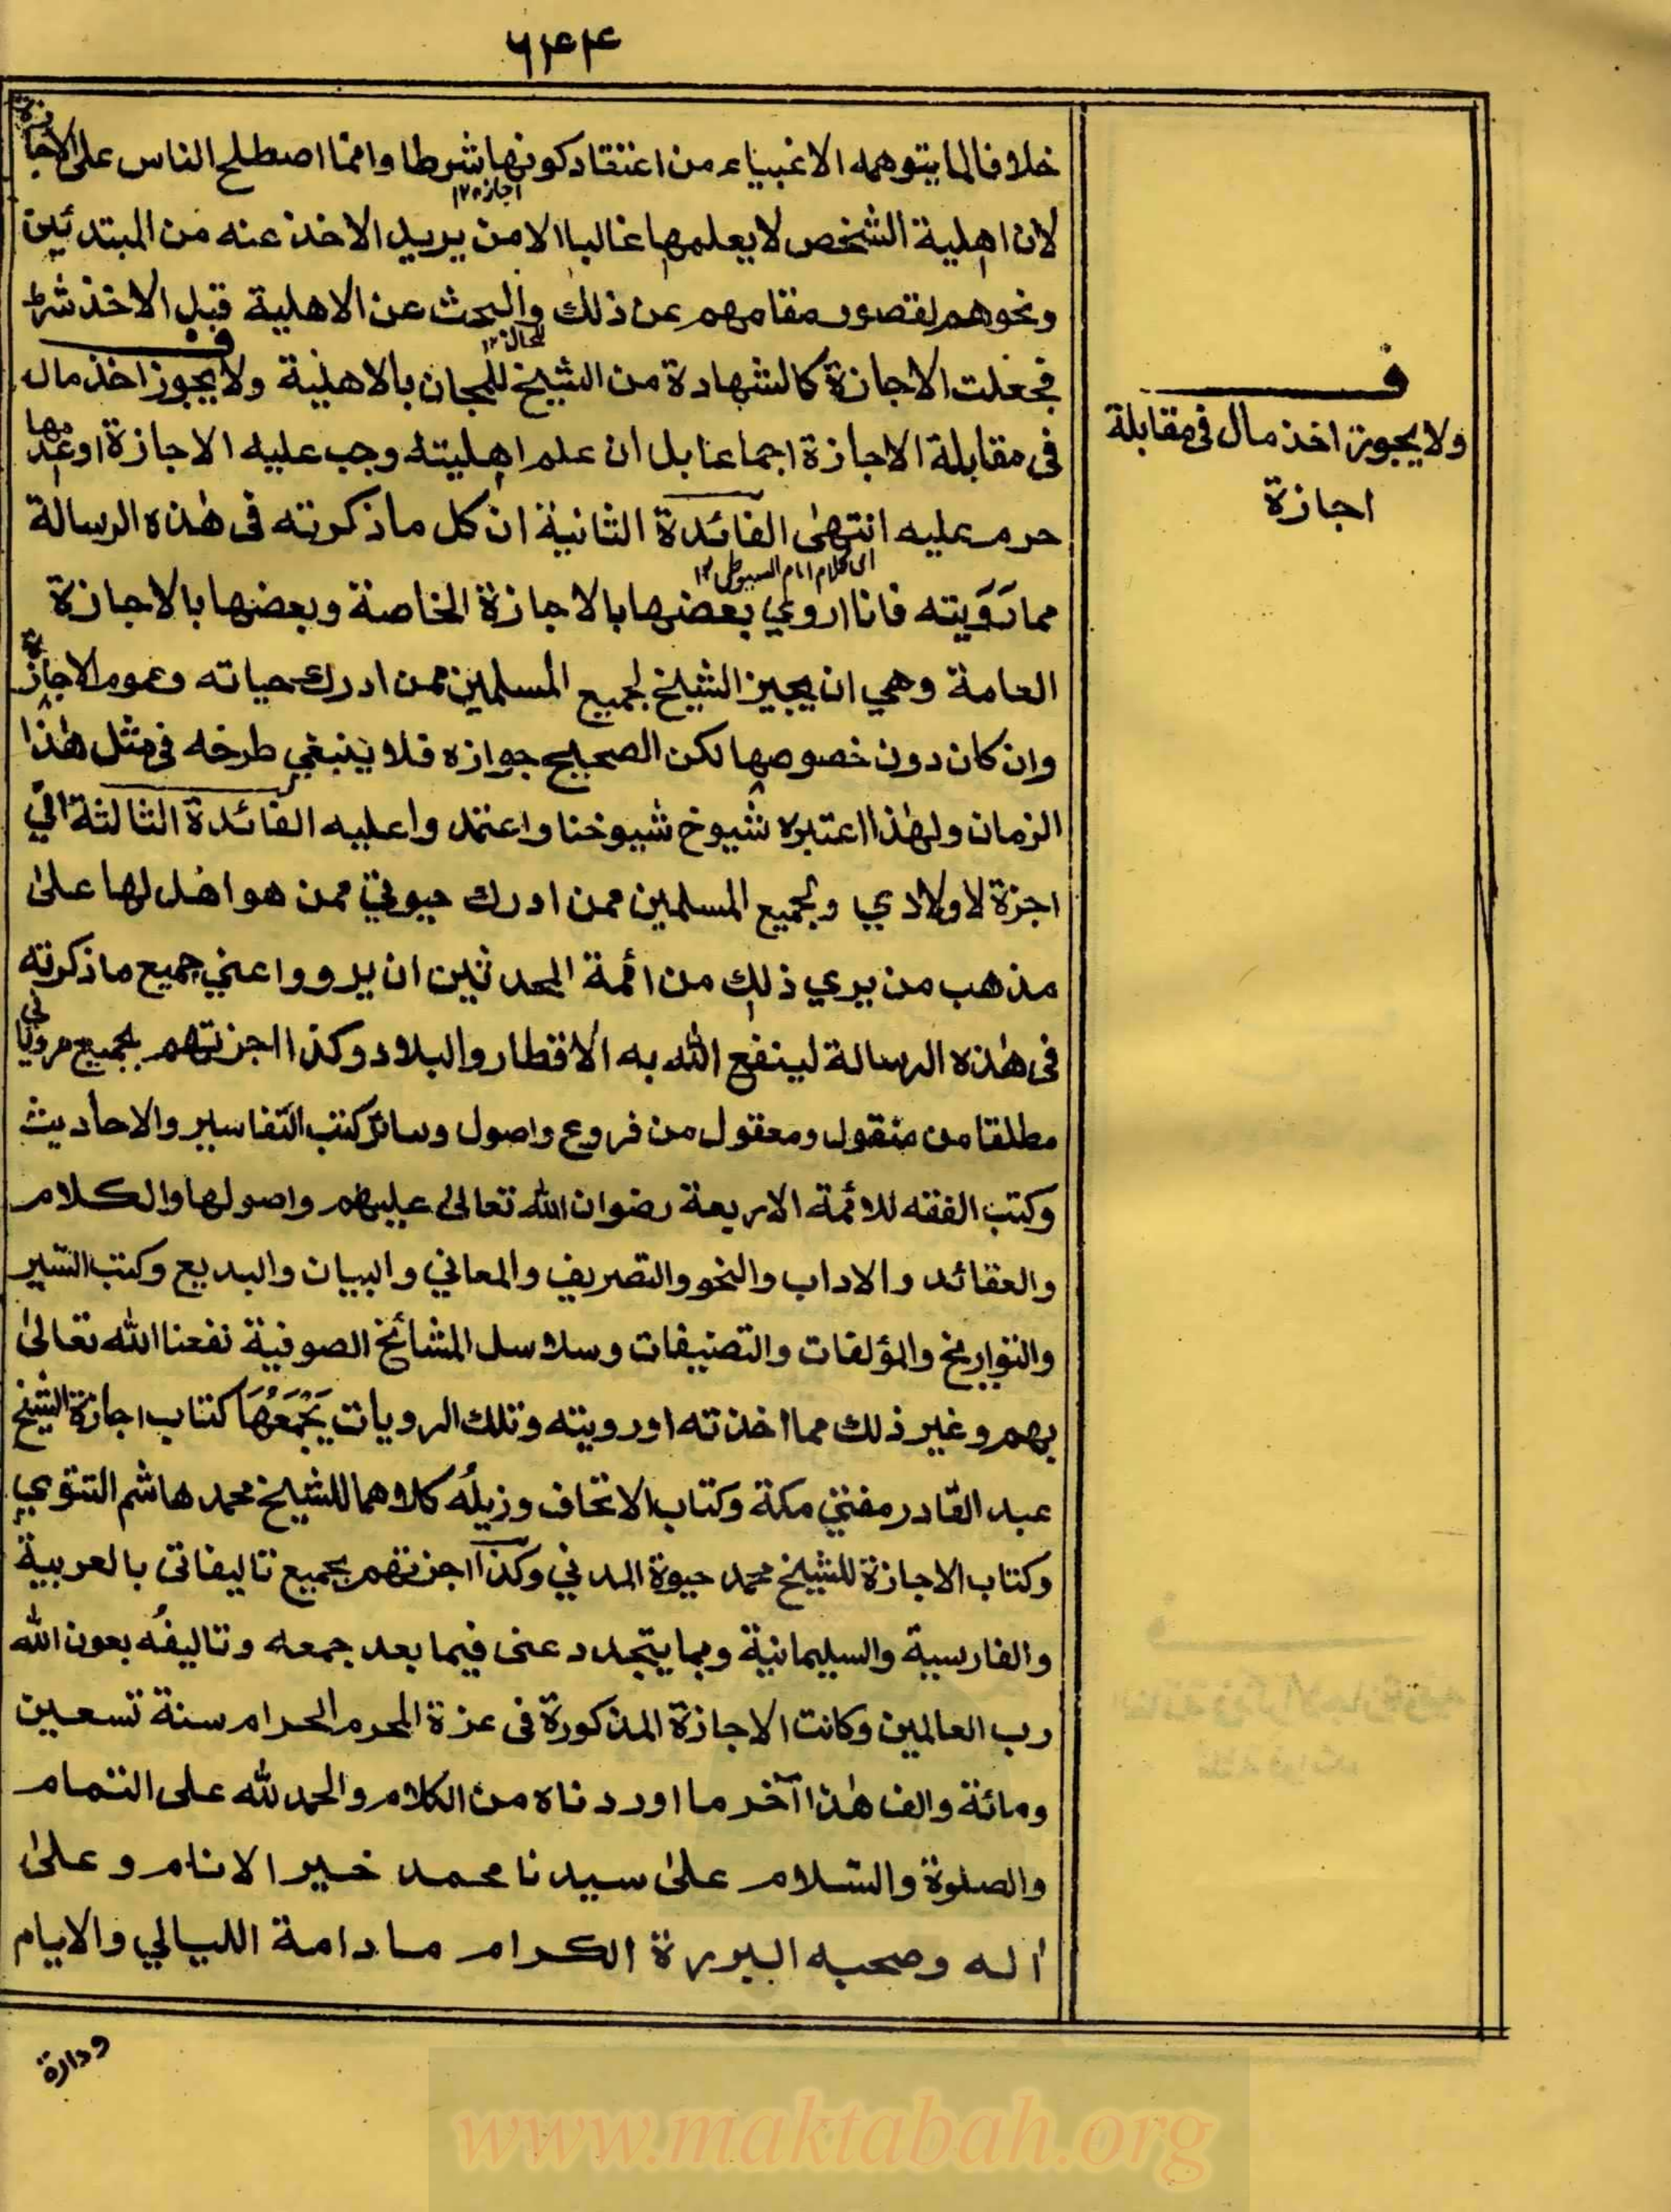 ۶۴۴
خلافا لما يتوهمه الاغبياء من اعتقاد كونها شرطا وانما اصطلح الناس على الاجازة
لان اهلية الشخص لا يعلمها غالبا الا من يريد الاخذ عنه من المبتدئين
ونحوهم لقصور مقامهم عن ذلك والبحث عن الاهلية قبل الاخذ شرط
فجعلت الاجازة كالشهادة من الشيخ للمجاز بالاهلية ولا يجوز اخذ مال
في مقابلة الاجازة اجماعا بل ان علم اهليته وجب عليه الاجازة او عدمها
حرم عليه انتهى الفائدة الثانية ان كل ما ذكرته فى هذه الرسالة
الى كلام امام السيوطى ١٢
مما رَوَيته فانا اروي بعضها بالاجازة الخاصة وبعضها بالاجازة
العامة وهي ان يجيز الشيخ لجميع المسلمين ممن ادرك حياته وعموم الاجازة
وان كان دون خصوصها لكن الصحيح جوازه فلا ينبغي طرحه في مثل هذا
الزمان ولهذا اعتبره شيوخ شيوخنا واعتمدوا عليه الفائدة الثالثة انّي
اجزة لاولادي ولجميع المسلمين ممن ادرك حيوتي ممن هو اهل لها على
مذهب من يري ذلك من ائمة المحدثين ان يرووا عني جميع ما ذكرته
فى هذه الرسالة لينفع الله به الاقطار والبلاد وكذا اجزتهم بجميع مروياتي
مطلقا من منقول ومعقول من فروع واصول وسائر كتب التفاسير والاحاديث
وكتب الفقه للائمة الاربعة رضوان الله تعالى عليهم واصولها والكلام
والعقائد والاداب والنحو والتصريف والمعاني والبيان والبديع وكتب السير
والتواريخ والمؤلفات والتصنيفات وسلاسل المشائخ الصوفية نفعنا الله تعالى
بهم وغير ذلك مما اخذته او رويته وتلك الرويات يَجْمَعُهَا كتاب اجازة الشيخ
عبد القادر مفتي مكة وكتاب الاتحاف وزيلُه كلاهما للشيخ محمد هاشم التتوي
وكتاب الاجازة للشيخ محمد حيوة المدني وكذا اجزتهم بجميع تاليفاتى بالعربية
والفارسية والسليمانية وبما يتجدد عنى فيما بعد جمعه وتاليفُه بعون الله
رب العالمين وكانت الاجازة المذكورة فى عزة المحرم الحرام سنة تسعين
ومائة والف هذا آخر ما اوردناه من الكلام والحمد لله على التمام
والصلوة والسّلام على سيدنا محمد خير الانام وعلى
آله وصحبه البررة الكرام ما دامة الليالي والايام
ف
ولا يجوز اخذ مال فى مقابلة
اجازة
ودارة
www.maktabah.org